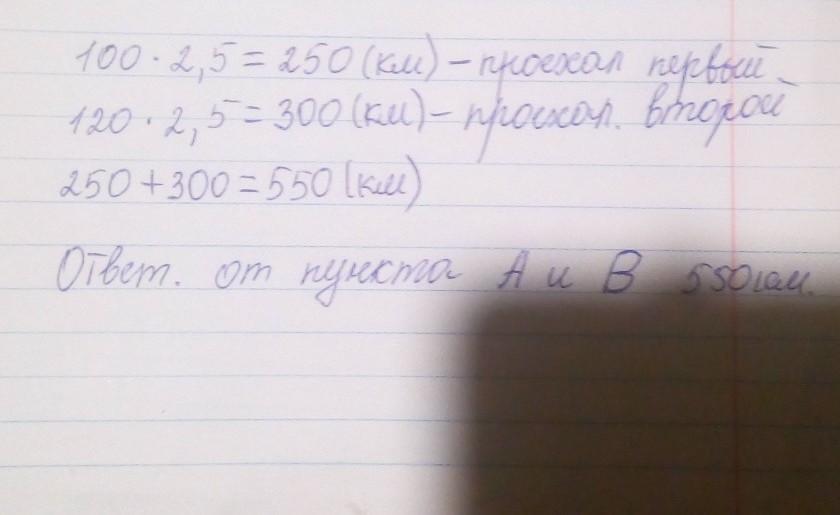 100 · 2,5 = 250 (км) – проехал первый.
120 · 2,5 = 300 (км) – проехал. второй
250 + 300 = 550 (км)
Ответ. от пункта А и В 550 км.